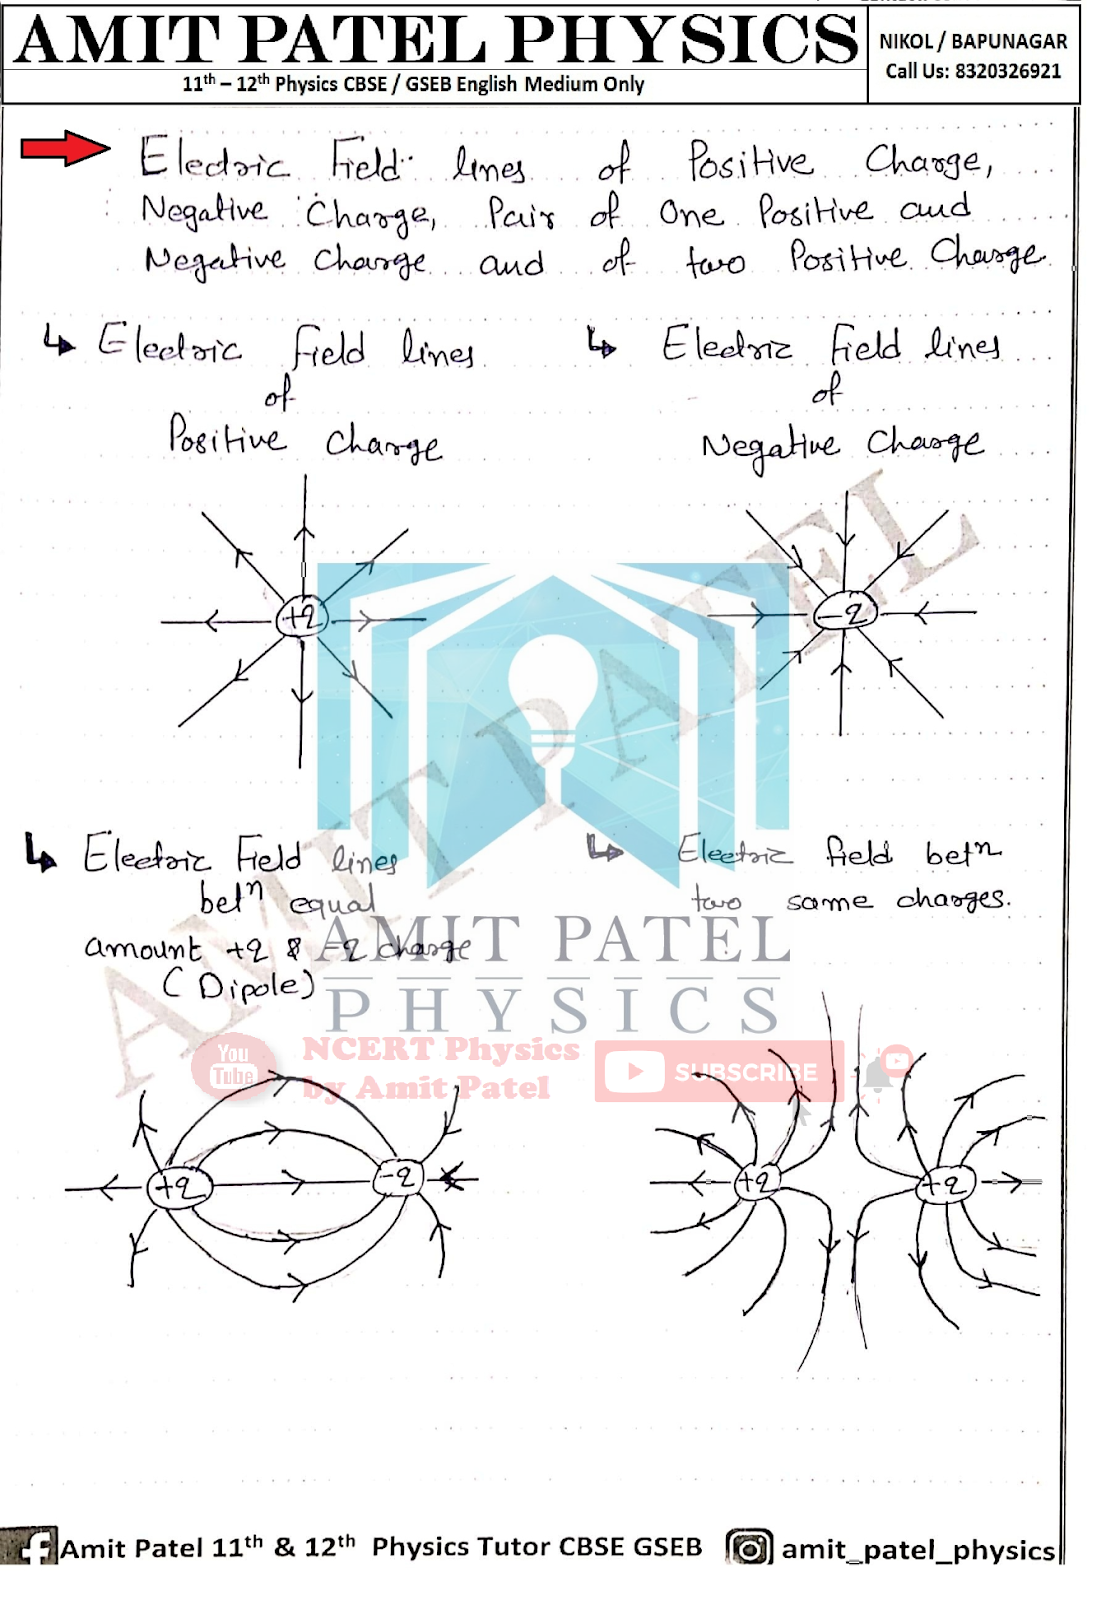 AMIT PATEL PHYSICS
11th – 12th Physics CBSE / GSEB English Medium Only
NIKOL / BAPUNAGAR
Call Us: 8320326921
Electric Field lines of Positive Charge,
Negative Charge, Pair of One Positive and
Negative Charge and of two Positive Charge
Electric Field lines
of
Positive Charge
Electric Field lines
of
Negative Charge
+q
-q
Electric Field lines
betn equal
amount +q & -q charge
(Dipole)
Electric field betn
two same charges.
AMIT PATEL
PHYSICS
AMIT PATEL
You
Tube
NCERT Physics
by Amit Patel
SUBSCRIBE
+q
-q
+q
+q
Amit Patel 11th & 12th Physics Tutor CBSE GSEB
amit_patel_physics